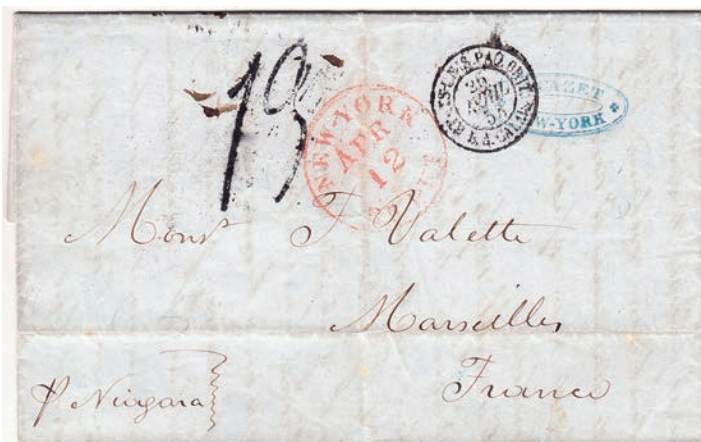 13
NEW-YORK
APR
12
ET.-UN. S. PAQ. BRIT.
26
AVRIL
A CALAIS
NEW-YORK *
Monsr F Valette
Marseilles
France
P Niagara